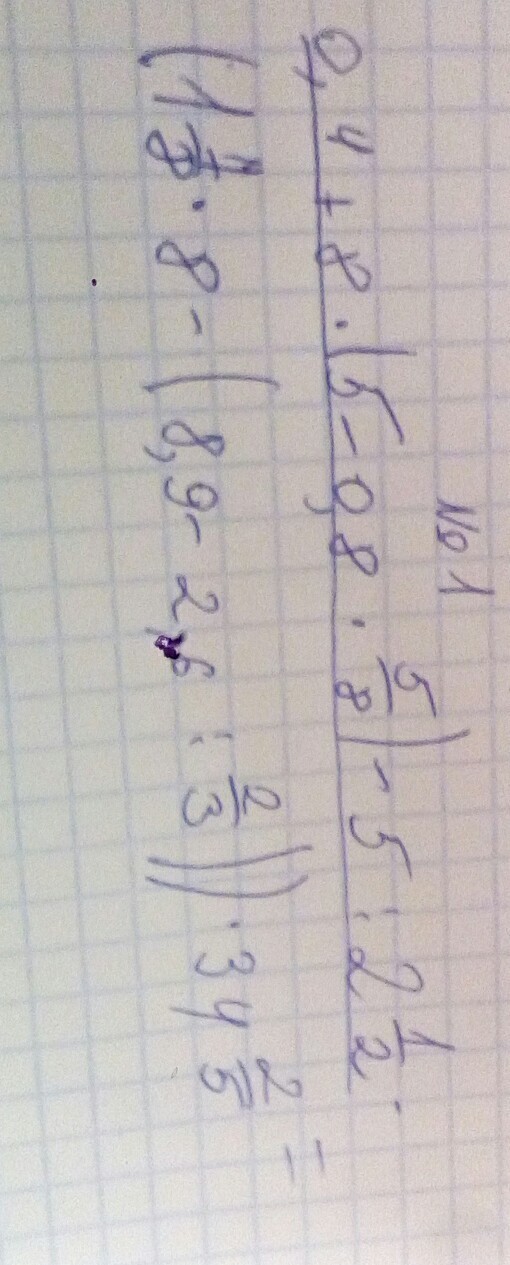 №1
0,4 + 8 · (5 - 0,8 · 5/8) - 5 : 2 1/2 ·
(1 7/8 · 8 - (8,9 - 2,6 : 2/3)) · 34 2/5 =